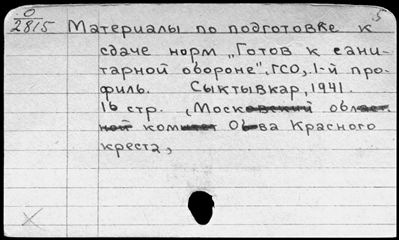 О
5
2815 Материалы по подготовке к
сдаче норм „Готов к сани-
тарной обороне", ГСО, 1-й про-
филь. Сыктывкар, 1941.
16 стр. (Московский област
ной комитет Об-ва Красного
креста,